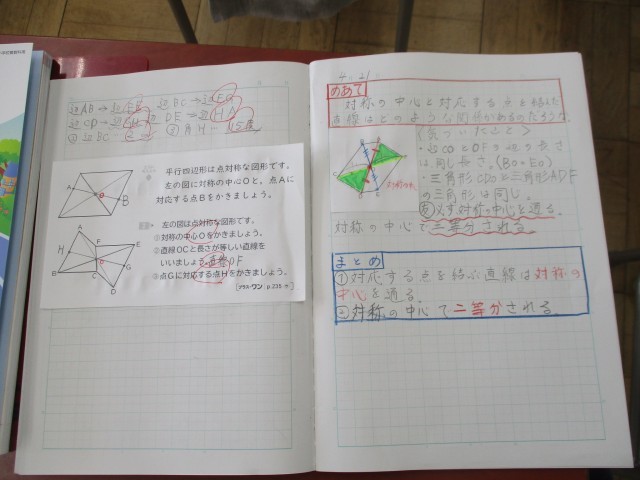 平行四辺形は点対称な図形です。
左の図に対称の中心Oと、点Aに
対応する点Bをかきましょう。
A
O
B
左の図は点対称な図形です。
①対称の中心Oをかきましょう。
②直線OCと長さが等しい直線を
いいましょう。直線OF
③点Gに対応する点Hをかきましょう。
プラス・ワン p.235
A
F
E
H
B
O
G
C
D
4.21
めあて
対称の中心と対応する点を結んだ
直線はどのような関係があるのだろうか。
<気づいたこと>
は同じ長さ。(BO=EO)
の三角形は同じ。
必ず対称の中心を通る。
対称の中心で二等分される。
まとめ
①対応する点を結ぶ直線は対称の
中心を通る。
②対称の中心で二等分される。